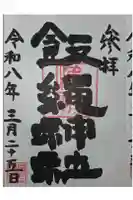 参拝
飯縄神社
令和八年三月二十五日